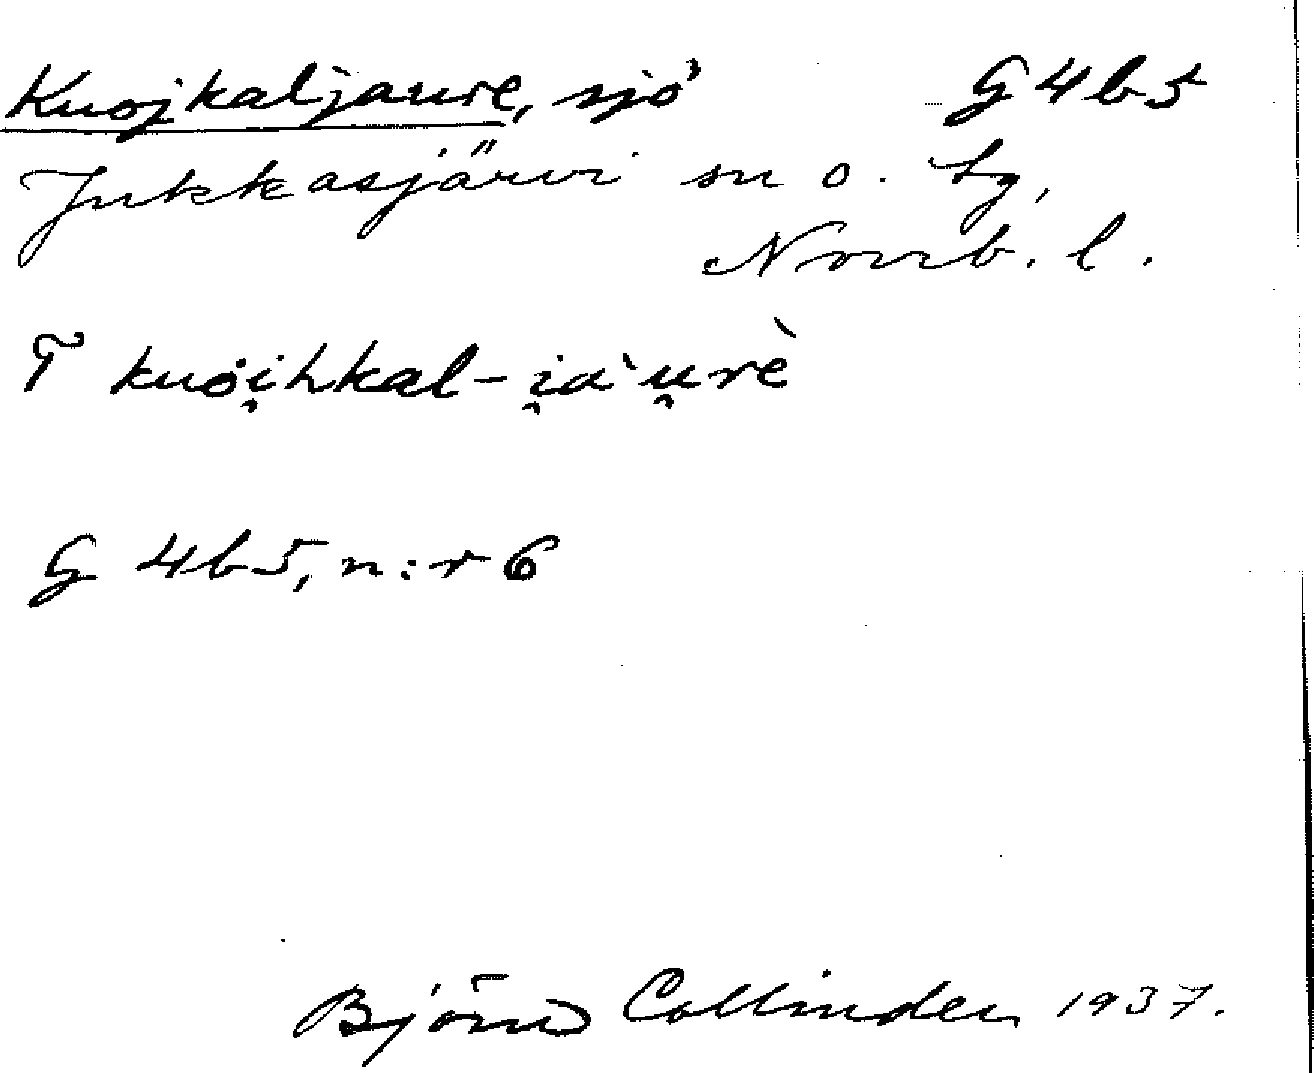 Kuojkaljaure, sjö G 4 b 5
Jukkasjärvi sn o. tg,
Norrb. l.
T kuȯi̯hkal-i̯a`u̯rè
G 4b5, n:r 6
Björn Collinder 1937.